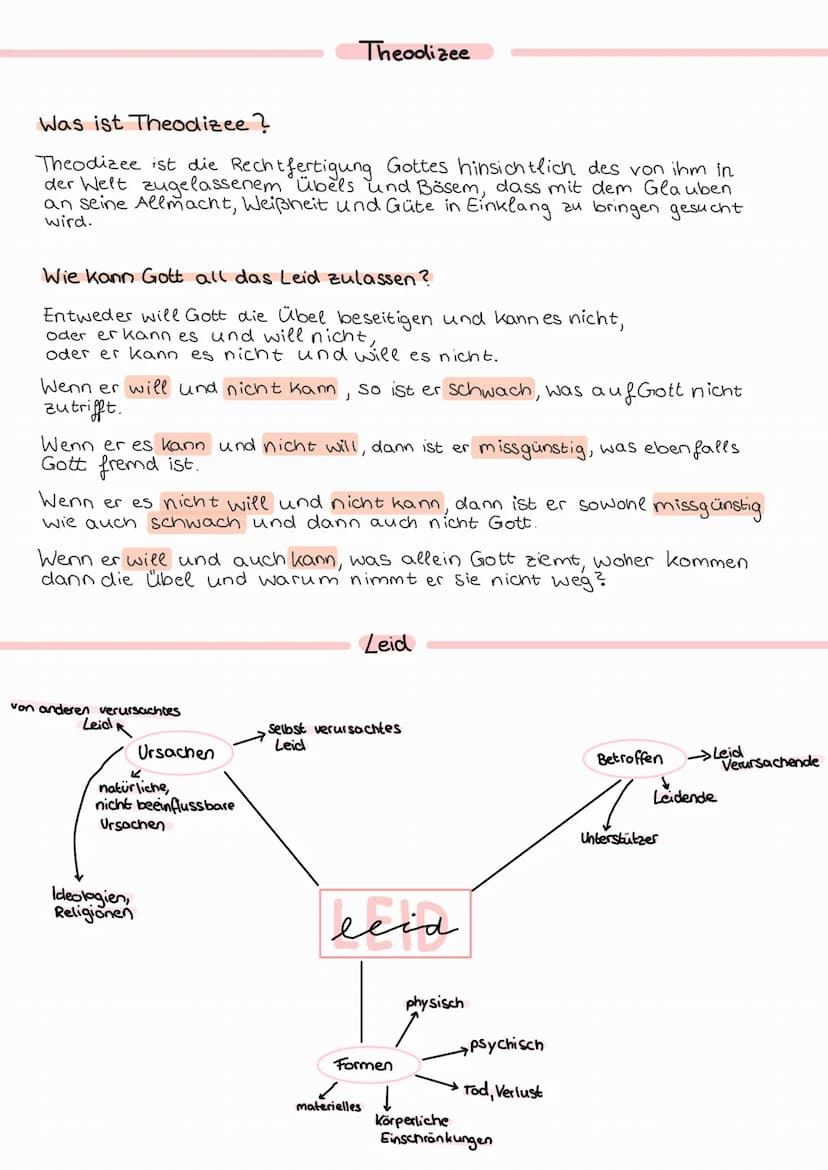 Theodizee
Was ist Theodizee?
Theodizee ist die Rechtfertigung Gottes hinsichtlich des von ihm in
der Welt zugelassenem Übels und Bösem, dass mit dem Glauben
an seine Allmacht, Weißheit und Güte in Einklang zu bringen gesucht
wird.
Wie kann Gott all das Leid zulassen?
Entweder will Gott die Übel beseitigen und kann es nicht,
oder er kann es und will nicht,
oder er kann es nicht und will es nicht.
Wenn er will und nicht kann, so ist er schwach, was auf Gott nicht
zutrifft.
Wenn er es kann und nicht will, dann ist er missgünstig, was ebenfalls
Gott fremd ist.
Wenn er es nicht will und nicht kann, dann ist er sowohl missgünstig
wie auch schwach und dann auch nicht Gott.
Wenn er will und auch kann, was allein Gott ziemt, woher kommen
dann die Übel und warum nimmt er sie nicht weg?
Leid
von anderen verursachtes
Leid
Ursachen
selbst verursachtes
Leid
natürliche,
nicht beeinflussbare
Ursachen
Ideologien,
Religionen
Betroffen
Leid
Verursachende
Leidende
Unterstützer
LEID
leid
Formen
physisch
psychisch
Tod, Verlust
körperliche
Einschränkungen
materielles